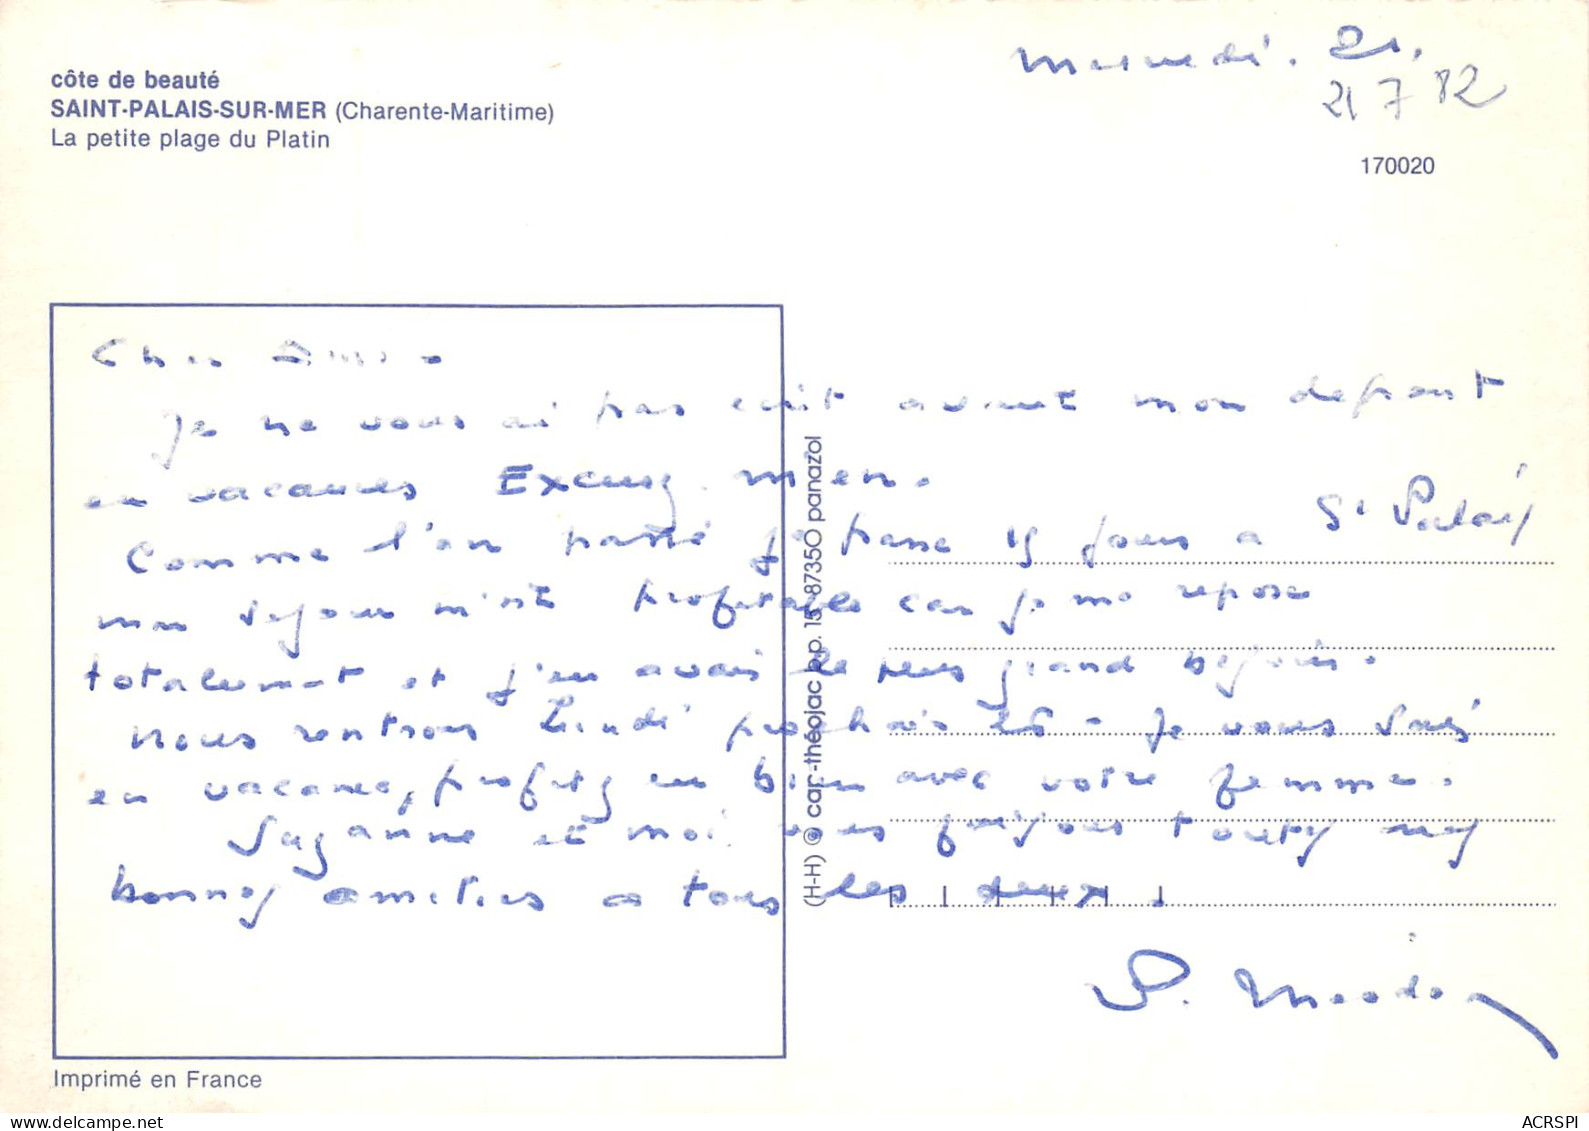 côte de beauté
SAINT-PALAIS-SUR-MER (Charente-Maritime)
La petite plage du Platin
Mercredi. 21.
21 7 82
170020
Cher Ami
Je ne vous ai pas ecrit avant mon depart
en vacances Excusez. m'en.
Comme l'an passé je passe 15 jours a St Palais
mon sejour m'est profitable car je me repose
totalement et j'en avais le plus grand besoin.
nous rentrons Lundi prochain 26 - Je vous sais
en vacances, profitez en bien avec votre femme.
Suzanne et moi vous faisons toutes nos
bonnes amitiés a tous les deux.
(H-H) © cap-théojac b.p. 15-87350 panazol
Imprimé en France
www.delcampe.net
ACRSPI